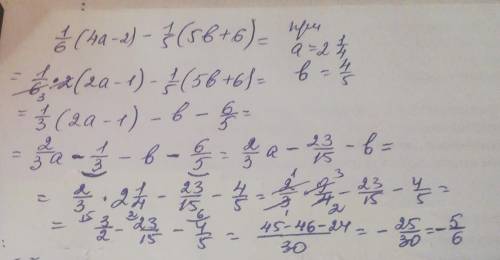 1/6 (4a-2) - 1/5 (5в+6) = при a = 2 1/4
= 1/6 · 2(2a-1) - 1/5 (5в+6) = в = 4/5
3
= 1/3 (2a-1) - в - 6/5 =
= 2/3 a - 1/3 - в - 6/5 = 2/3 a - 23/15 - в =
= 2/3 · 2 1/4 - 23/15 - 4/5 = 2/3 · 9/4 - 23/15 - 4/5 =
= 3/2 - 23/15 - 4/5 = (45-46-24)/30 = - 25/30 = - 5/6